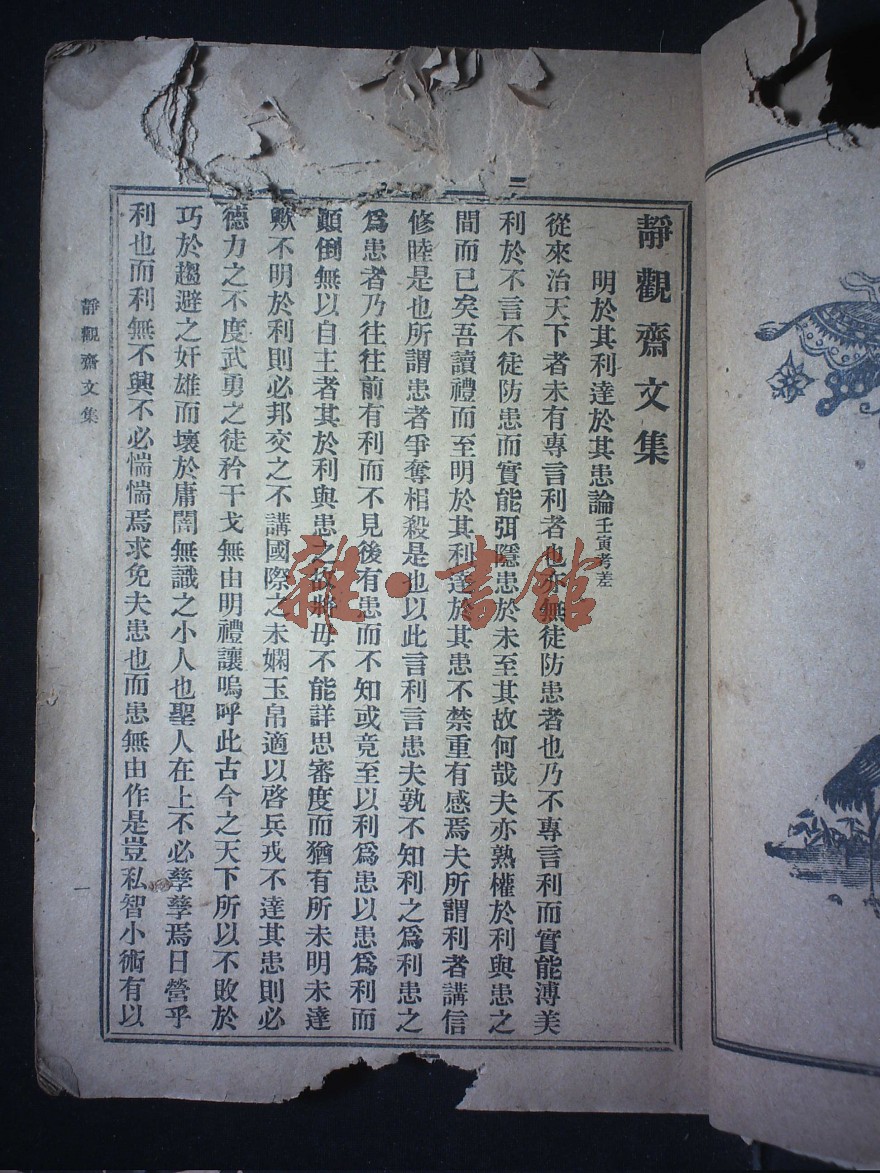 靜觀齋文集
明於其利達於其患論壬寅考差
從來治天下者未有專言利者也亦無徒防患者也乃不專言利而實能溥美
利於不言不徒防患而實能弭隱患於未至其故何哉夫亦熟權於利與患之
間而已矣吾讀禮而至明於其利達於其患不禁重有感焉夫所謂利者講信
修睦是也所謂患者爭奪相殺是也以此言利言患夫孰不知利之爲利患之
爲患者乃往往前有利而不見後有患而不知或竟至以利爲患以患爲利而
顚倒無以自主者其於利與患之故將毋不能詳思審度而猶有所未明未達
歟不明於利則必邦交之不講國際之未嫻玉帛適以啓兵戎不達其患則必
德力之不度武勇之徒矜干戈無由明禮讓嗚呼此古今之天下所以不敗於
巧於趨避之奸雄而壞於庸闇無識之小人也聖人在上不必孳孳焉日營乎
利也而利無不興不必惴惴焉求免夫患也而患無由作是豈私智小術有以
靜觀齋文集
一
雜·書館